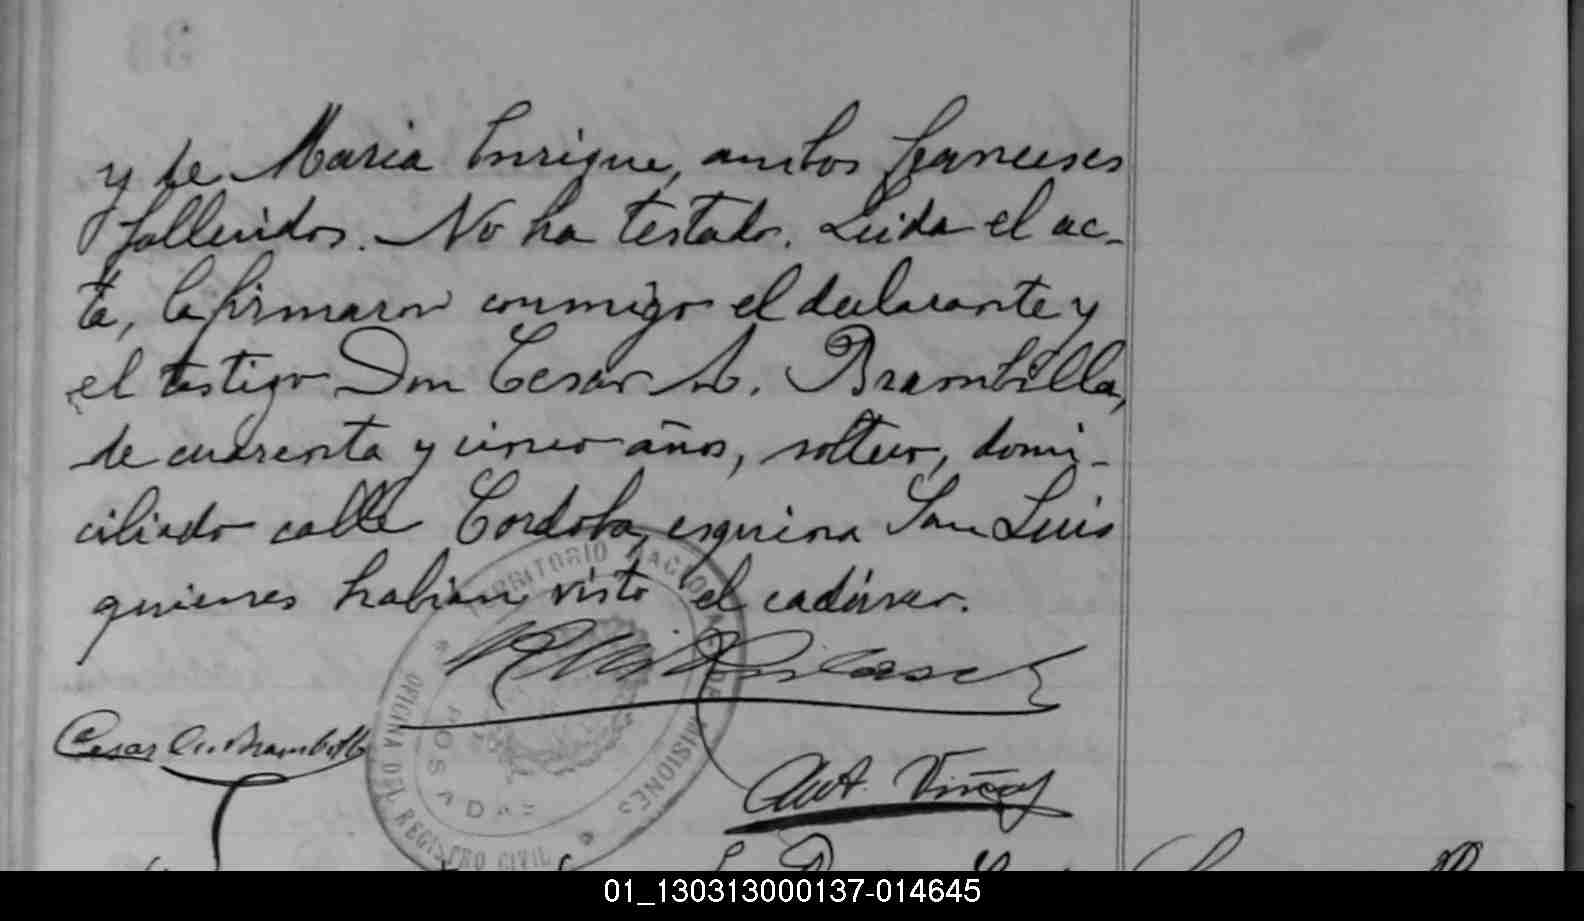 y de Maria Enrique, ambos franceses
fallecidos. No ha testado. Leida el ac-
ta, la firmaron conmigo el declarante y
el testigo Don Cesar A. Brambilla,
de cuarenta y cinco años, soltero, domi-
ciliado calle Cordoba, esquina San Luis
quienes habian visto el cadáver.
TERRITORIO NACIONAL DE MISIONES
OFICINA DEL REGISTRO CIVIL
POSADAS
Cesar A. Brambilla
Ant.
01_130313000137-014645